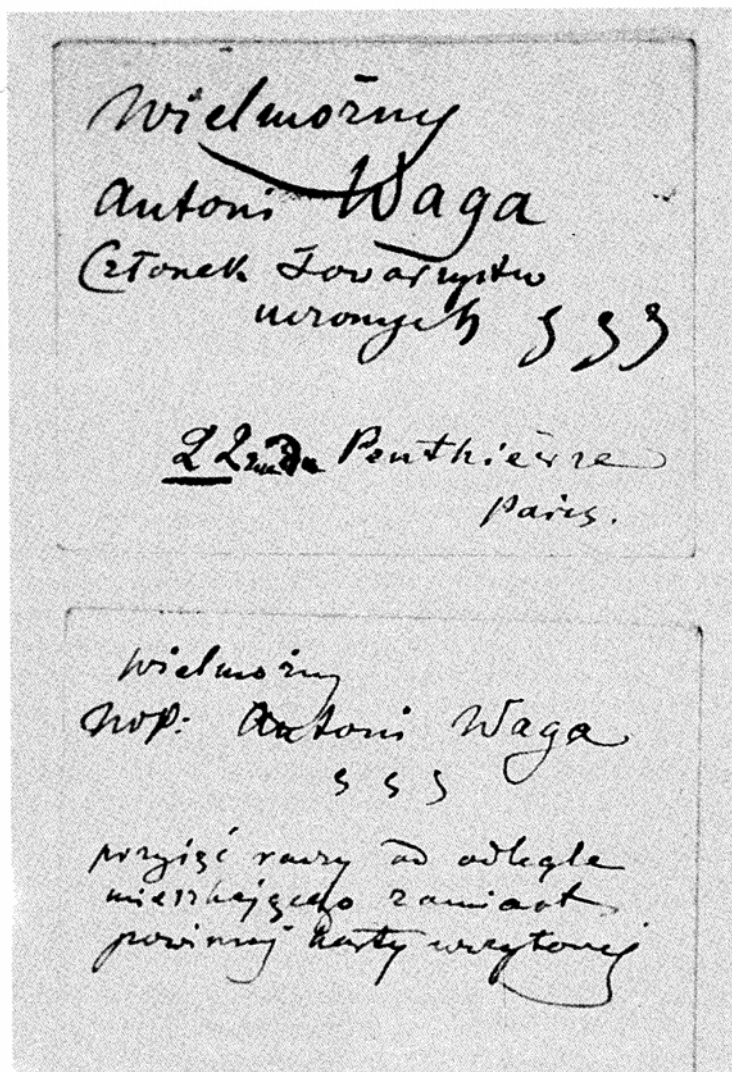 Wielmożny
Antoni Waga
Członek Towarzystw
uczonych § § §
22 rue du Penthièvre
Paris.
Wielmożny
Antoni Waga
§ § §
przyjąć raczy od odlegle
mieszkającego zamiast
powinnej karty wizytowej